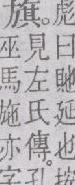 彪曰延也
旗。
見左氏傳。孔
巫馬施亦字